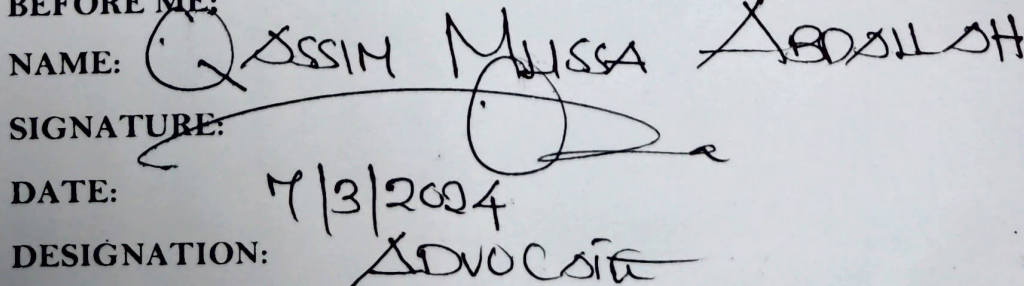 BEFORE ME:
NAME: QASSIM MUSSA ABDALLAH
SIGNATURE:
DATE: 7/3/2024
DESIGNATION: ADVOCATE